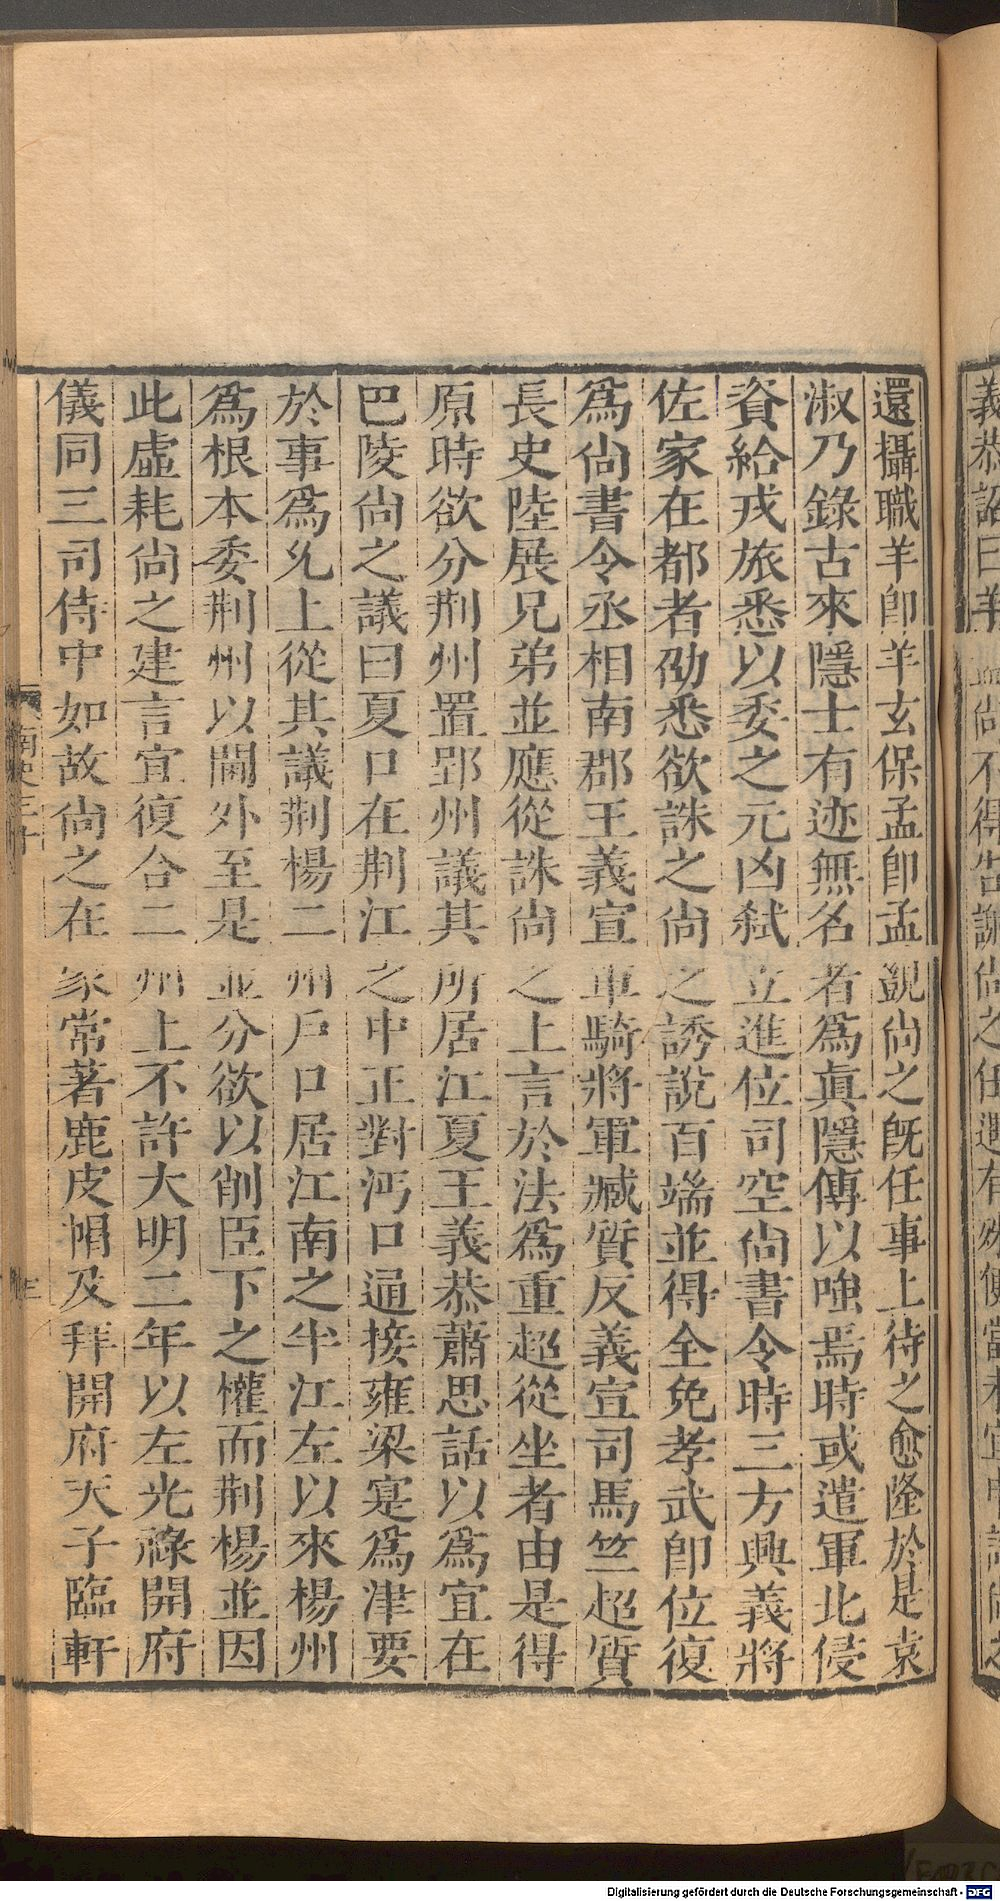 還攝職羊卽羊玄保孟卽孟覬尙之旣任事上待之愈隆於是袁
淑乃錄古來隱士有迹無名者爲眞隱傳以嗤焉時或遣軍北侵
資給戎旅悉以委之元凶弑立進位司空尙書令時三方興義將
佐家在都者劭悉欲誅之尙之誘說百端並得全免孝武卽位復
爲尙書令丞相南郡王義宣車騎將軍臧質反義宣司馬竺超質
長史陸展兄弟並應從誅尙之上言於法爲重超從坐者由是得
原時欲分荆州置郢州議其所居江夏王義恭蕭思話以爲宜在
巴陵尙之議曰夏口在荆江之中正對沔口通接雍梁寔爲津要
於事爲允上從其議荆楊二州戶口居江南之半江左以來楊州
爲根本委荆州以閫外至是並分欲以削臣下之權而荆楊並因
此虛耗尙之建言宜復合二州上不許大明二年以左光祿開府
儀同三司侍中如故尙之在家常著鹿皮帽及拜開府天子臨軒
南史三十
Digitalisierung gefördert durch die Deutsche Forschungsgemeinschaft - DFG